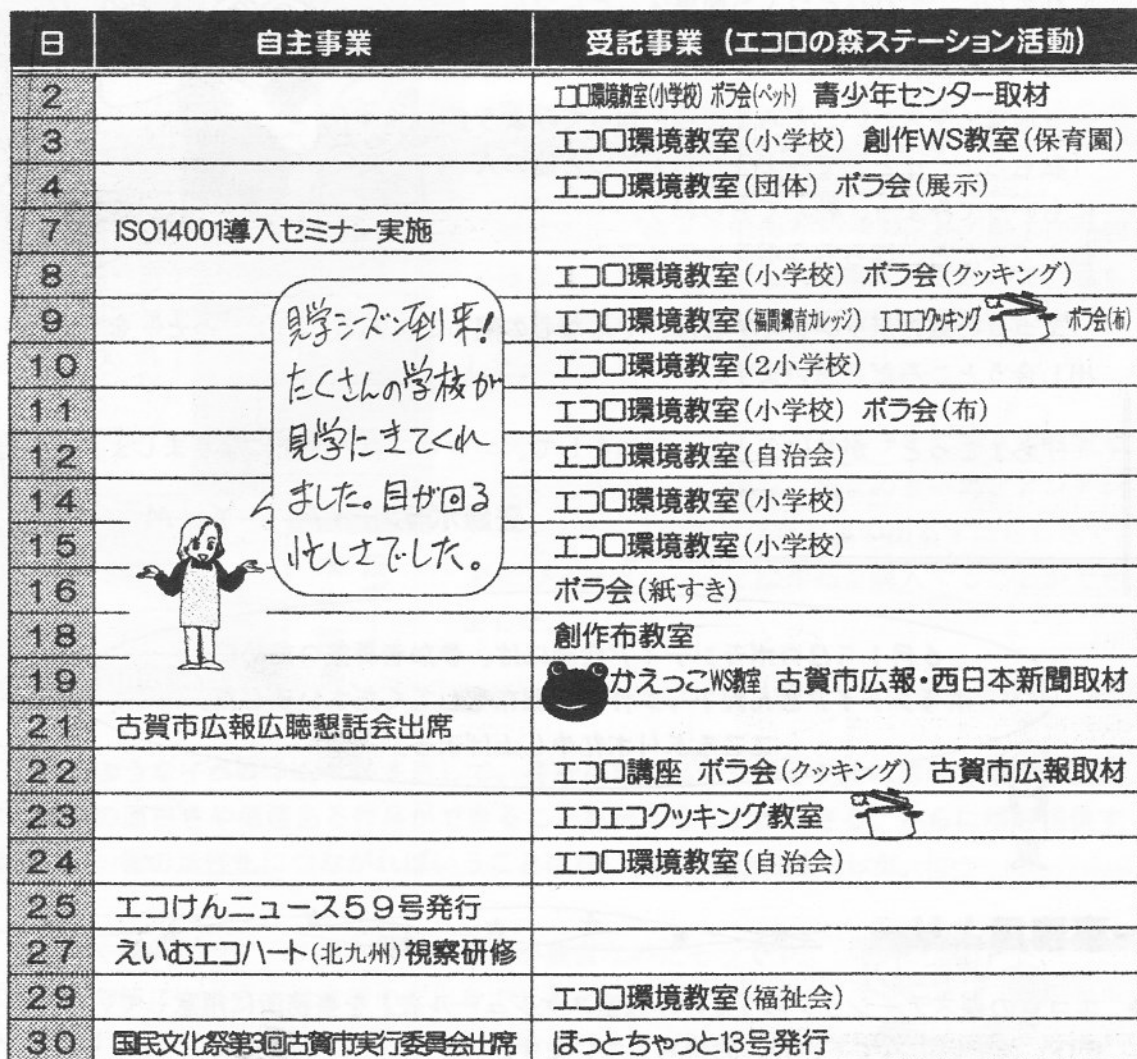 日 自主事業 受託事業 (エコロの森ステーション活動)
2 エコロ環境教室(小学校) ボラ会(ペット) 青少年センター取材
3 エコロ環境教室(小学校) 創作WS教室(保育園)
4 エコロ環境教室(団体) ボラ会(展示)
7 ISO14001導入セミナー実施
8 エコロ環境教室(小学校) ボラ会(クッキング)
9 エコロ環境教室(福間郷育カレッジ) エコエコクッキング ボラ会(布)
10 エコロ環境教室(2小学校)
11 エコロ環境教室(小学校) ボラ会(布)
12 エコロ環境教室(自治会)
14 エコロ環境教室(小学校)
15 エコロ環境教室(小学校)
16 ボラ会(紙すき)
18 創作布教室
19 かえっこWS教室 古賀市広報・西日本新聞取材
21 古賀市広報広聴懇話会出席
22 エコロ講座 ボラ会(クッキング) 古賀市広報取材
23 エコエコクッキング教室
24 エコロ環境教室(自治会)
25 エコけんニュース59号発行
27 えいむエコハート(北九州)視察研修
29 エコロ環境教室(福祉会)
30 国民文化祭第3回古賀市実行委員会出席 ほっとちゃっと13号発行
見学シーズン到来!
たくさんの学校が
見学にきてくれ
ました。目が回る
忙しさでした。